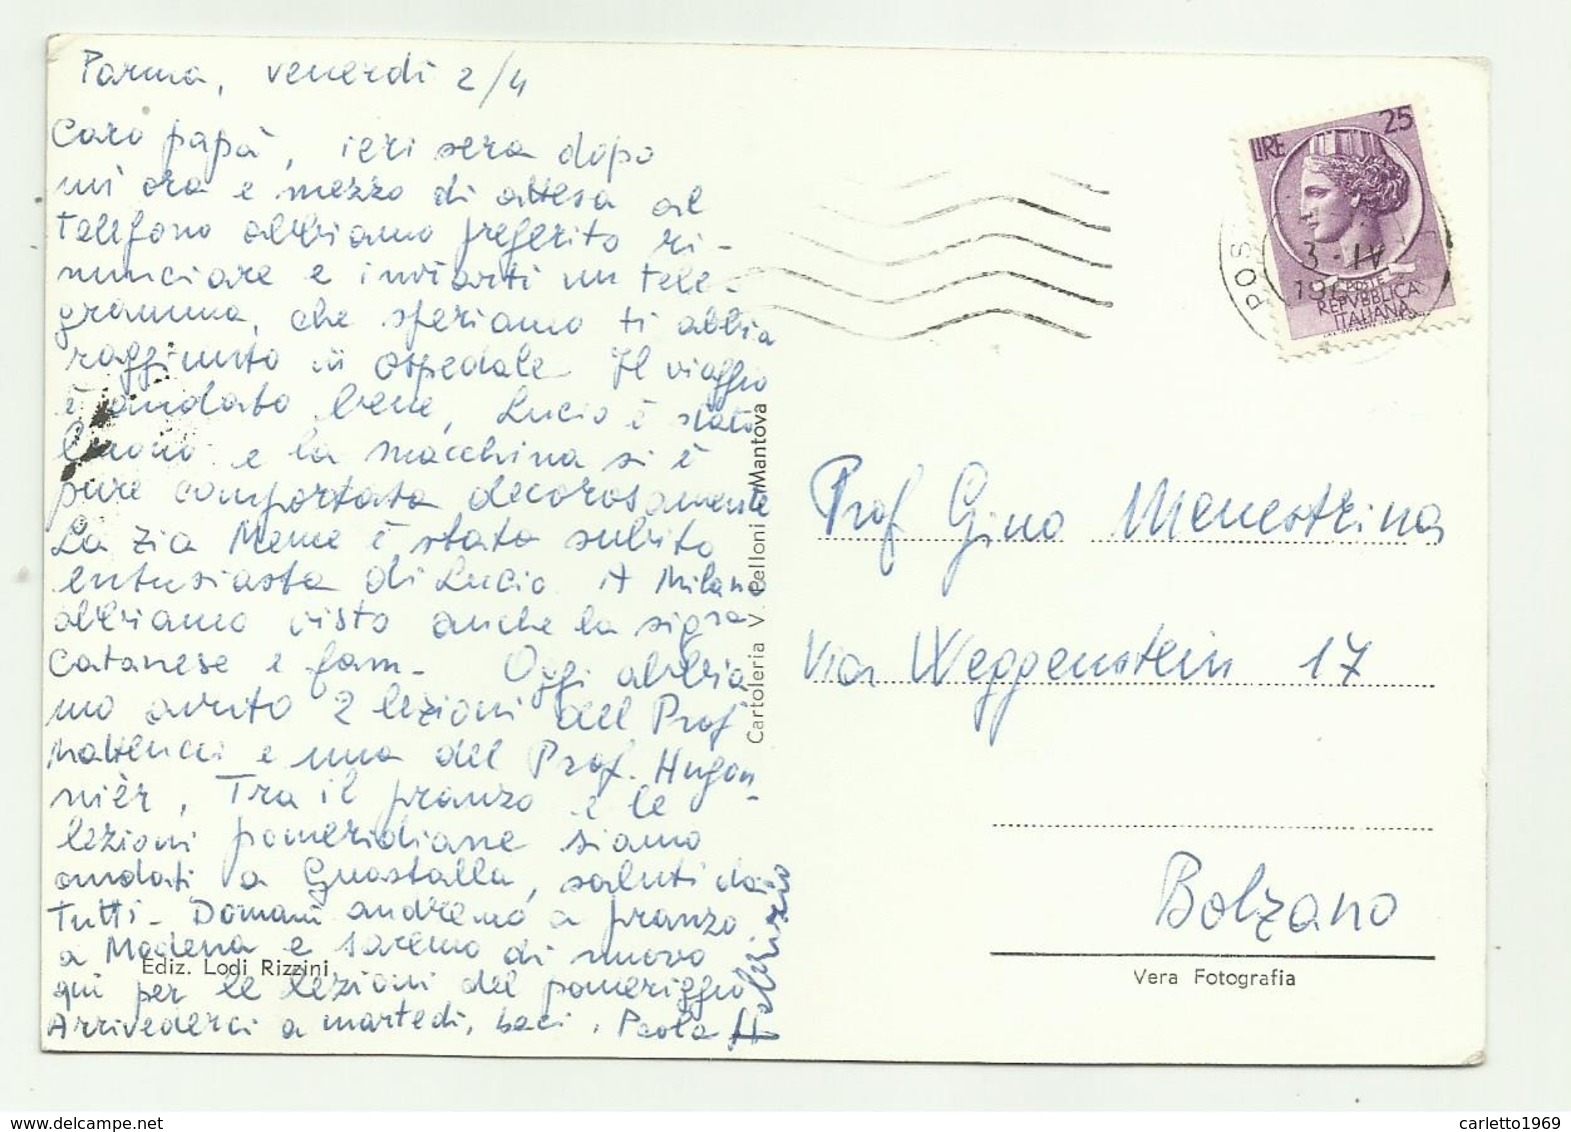 Parma, venerdì 2/4
Caro papà, ieri sera dopo
un'ora e mezzo di attesa al
telefono abbiamo preferito ri-
nunciare e inviarti un tele-
gramma, che speriamo ti abbia
raggiunto in ospedale. Il viaggio
è andato bene, Lucio è stato
buono e la macchina si è
pure comportata decorosamente
La zia Meme è stata subito
entusiasta di Lucio. A Milano
abbiamo visto anche la sig.ra
Catanese e fam. Oggi abbia
mo avuto 2 lezioni del Prof
Matteucci e una del Prof. Hugon
nièr, Tra il pranzo e le
lezioni pomeridiane siamo
andati a Guastalla, saluti da
tutti - Domani andremo a pranzo
a Modena e saremo di nuovo
qui per le lezioni del pomeriggio
Arrivederci a martedì, baci, Paola
Ediz. Lodi Rizzini
Cartoleria V. Pelloni - Mantova
LIRE 25
POSTE
REPVBBLICA
ITALIANA
POS
3-IV
Prof Gino Menestrina
Via Weggenstein 17
Bolzano
Vera Fotografia
carletto1969